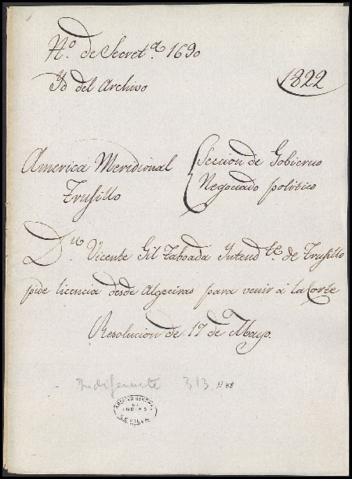 N.º de Secret.ª 1690
Yd del Archivo
1822
America Meridional
Truxillo
Seccion de Gobierno
Negociado politico
D.n Vicente Gil Taboada Yntend.te de Truxillo
pide licencia desde Algeciras para venir á la Corte
Resolucion de 17 de Mayo.
Indiferente 313
ARCHIVO GENERAL
DE
INDIAS
SEVILLA